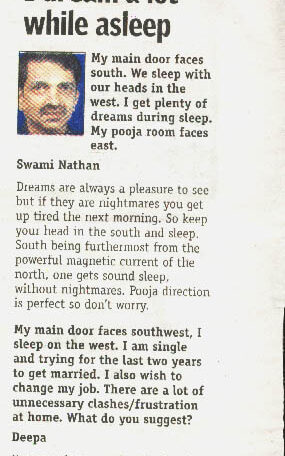 while asleep
My main door faces
south. We sleep with
our heads in the
west. I get plenty of
dreams during sleep.
My pooja room faces
east.
Swami Nathan
Dreams are always a pleasure to see
but if they are nightmares you get
up tired the next morning. So keep
your head in the south and sleep.
South being furthermost from the
powerful magnetic current of the
north, one gets sound sleep,
without nightmares. Pooja direction
is perfect so don't worry.
My main door faces southwest, I
sleep on the west. I am single
and trying for the last two years
to get married. I also wish to
change my job. There are a lot of
unnecessary clashes/frustration
at home. What do you suggest?
Deepa